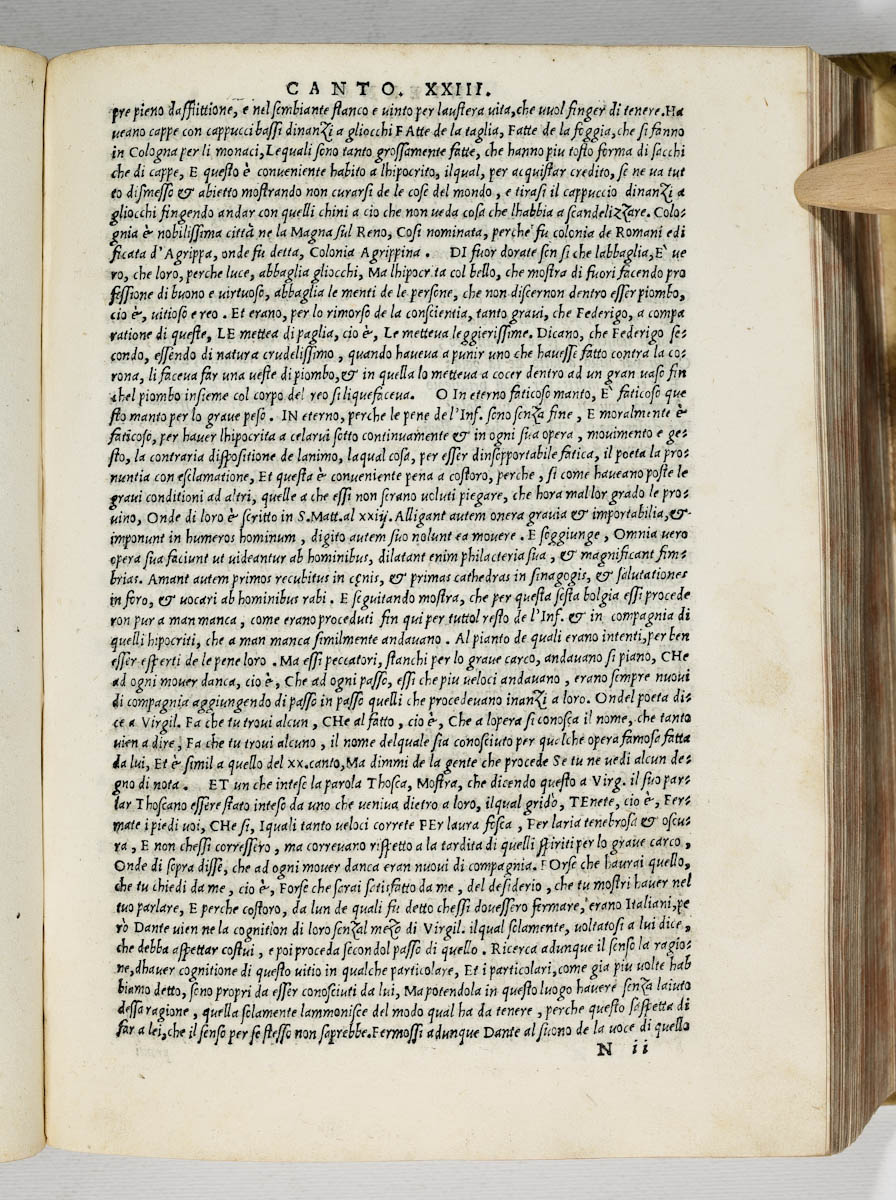 CANTO. XXIII.
pre pieno dafflittione, e nel sembiante stanco e uinto per laustera uita, che uuol finger di tenere. Ha
ueano cappe con cappucci bassi dinanzi a gliocchi FAtte de la taglia, Fatte de la foggia, che si fanno
in Cologna per li monaci, Lequali sono tanto grossamente fatte, che hanno piu tosto forma di sacchi
che di cappe, E questo è conueniente habito a lhipocrito, ilqual, per acquistar credito, se ne ua tut
to dismesso & abietto mostrando non curarsi de le cose del mondo, e tirasi il cappuccio dinanzi a
gliocchi fingendo andar con quelli chini a cio che non ueda cosa che lhabbia a scandelizzare. Colo-
gnia è nobilissima città ne la Magna sul Reno, Cosi nominata, perche fu colonia de Romani edi
ficata d'Agrippa, onde fu detta, Colonia Agrippina. DI fuor dorate son si che labbaglia, E' ue
ro, che loro, perche luce, abbaglia gliocchi, Ma lhipocrita col bello, che mostra di fuori facendo pro
fessione di buono e uirtuoso, abbaglia le menti de le persone, che non discernon dentro esser piombo,
cio è, uitioso e reo. Et erano, per lo rimorso de la conscientia, tanto graui, che Federigo, a compa
ratione di queste, LE mettea di paglia, cio è, Le metteua leggierissime. Dicano, che Federigo se-
condo, essendo di natura crudelissimo, quando haueua a punir uno che hauesse fatto contra la co-
rona, li faceua far una ueste di piombo, & in quella lo metteua a cocer dentro ad un gran uaso fin
chel piombo insieme col corpo del reo si liquefaceua. O In eterno faticoso manto, E' faticoso que
sto manto per lo graue peso. IN eterno, perche le pene de l'Inf. sono senza fine, E moralmente è
faticoso, per hauer lhipocrita a celarui sotto continuamente & in ogni sua opera, mouimento e ge-
sto, la contraria dispositione de lanimo, laqual cosa, per esser dinsopportabile fatica, il poeta la pro-
nuntia con esclamatione, Et questa è conueniente pena a costoro, perche, si come haueano poste le
graui conditioni ad altri, quelle a che essi non serano uoluti piegare, che hora mal lor grado le pro-
uino, Onde di loro è scritto in S. Matt. al xxiij. Alligant autem onera grauia & importabilia, &
imponunt in humeros hominum, digito autem suo nolunt ea mouere. E soggiunge, Omnia uero
opera sua faciunt ut uideantur ab hominibus, dilatant enim philacteria sua, & magnificant fim-
brias. Amant autem primos recubitus in cęnis, & primas cathedras in sinagogis, & salutationes
in foro, & uocari ab hominibus rabi. E seguitando mostra, che per questa sesta bolgia essi procede
ron pur a man manca, come erano proceduti fin qui per tuttol resto de l'Inf. & in compagnia di
quelli hipocriti, che a man manca similmente andauano. Al pianto de quali erano intenti, per ben
esser esperti de le pene loro. Ma essi peccatori, stanchi per lo graue carco, andauano si piano, CHe
ad ogni mouer danca, cio è, Che ad ogni passo, essi che piu ueloci andauano, erano sempre nuoui
di compagnia aggiungendo di passo in passo quelli che procedeuano inanzi a loro. Ondel poeta di-
ce a Virgil. Fa che tu troui alcun, CHe al fatto, cio è, Che a lopera si conosca il nome, che tanto
uien a dire, Fa che tu troui alcuno, il nome delquale sia conosciuto per qualche opera famosa fatta
da lui, Et è simil a quello del xx. canto, Ma dimmi de la gente che procede Se tu ne uedi alcun de-
gno di nota. ET un che intese la parola Thosca, Mostra, che dicendo questo a Virg. il suo par-
lar Thoscano essere stato inteso da uno che ueniua dietro a loro, ilqual gridò, TEnete, cio è, Fer-
mate i piedi uoi, CHe si, I quali tanto ueloci correte PEr laura fosca, Per laria tenebrosa & oscu-
ra, E non chessi corressero, ma correuano rispetto a la tardita di quelli spiriti per lo graue carco,
Onde di sopra disse, che ad ogni mouer danca eran nuoui di compagnia. FOrse che haurai quello,
che tu chiedi da me, cio è, Forse che serai sotisfatto da me, del desiderio, che tu mostri hauer nel
tuo parlare, E perche costoro, da lun de quali fu detto chessi douessero fermare, erano Italiani, pe
rò Dante uien ne la cognition di loro senzal mezo di Virgil. ilqual solamente, uoltatosi a lui dice,
che debba aspettar costui, e poi proceda secondol passo di quello. Ricerca adunque il senso la ragio-
ne, dhauer cognitione di questo uitio in qualche particolare, Et i particolari, come gia piu uolte hab
biamo detto, seno propri da esser conosciuti da lui, Ma potendola in questo luogo hauere senza laiuto
dessa ragione, quella solamente lammonisce del modo qual ha da tenere, perche questo saspetta di
far a lei, che il senso per se stesso non saprebbe. Fermossi adunque Dante al suono de la uoce di quello
N ii